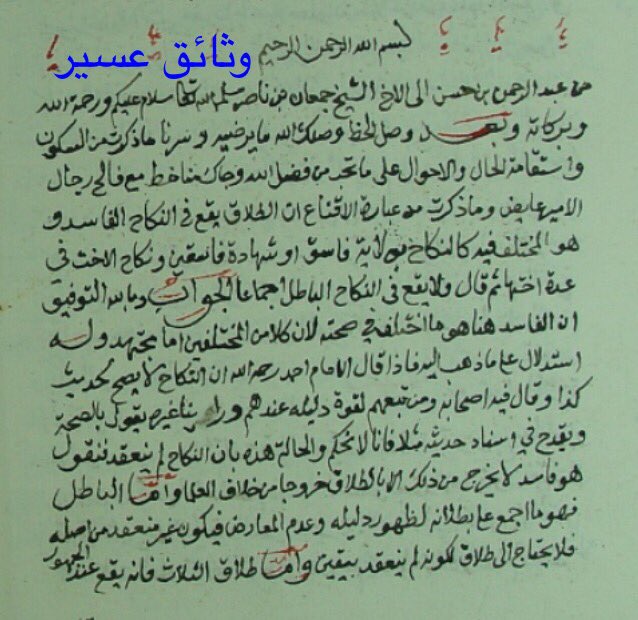 وثائق عسير
بسم الله الرحمن الرحيم
من عبد الرحمن بن حسن الى الاخ الشيخ جمعان بن ناصر سلمه الله تعا سلام عليكم ورحمة الله
وبركاته وبعد وصل الخط وصلك الله ما يرضيه وسرنا ما ذكرت من السكون
واستقامة الحال والاحوال على ما تحب من فضل الله وجاك منا خط مع فالح رجال
الامير عايض وما ذكرت من عبارة الاقناع ان الطلاق يقع في النكاح الفاسد و
هو المختلف فيه كالنكاح بولاية فاسق او شهادة فاسقين ونكاح الاخت في
عدة اختها ثم قال ولا يقع في النكاح الباطل اجماعا الجواب وبالله التوفيق
ان الفاسد هنا هو ما اختلف في صحته لان كلا من المختلفين اما مجتهد وله
استدلال على ما ذهب اليه فاذا قال الامام احمد رحمه الله ان النكاح لا يصح لحديث
كذا وقال فيه اصحابه ومن تبعهم لقوة دليله عندهم وراينا غيره يقول بالصحة
ويقدح في اسناد حديثه مثلا فانا لا نحكم والحالة هذه بان النكاح لم ينعقد فنقول
هو فاسد لا يخرج من ذلك الا بالطلاق خروجا من خلاف العلما واما الباطل
فهو ما اجمع على بطلانه لظهور دليله وعدم المعارض فيكون غير منعقد من اصله
فلا يحتاج الى طلاق لكونه لم ينعقد بيقين واما طلاق الثلاث فانه يقع عند الجمهور